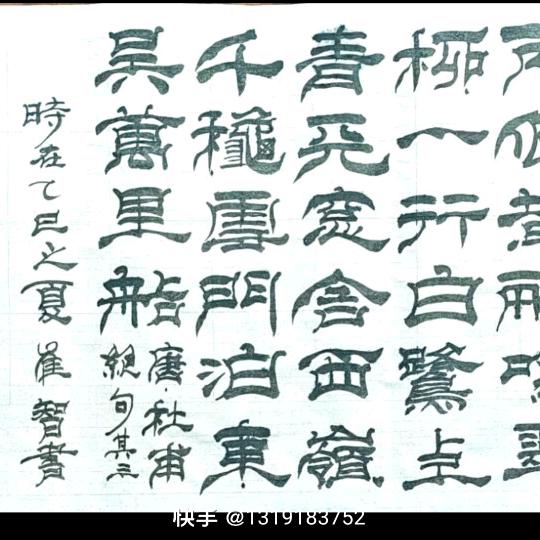 柳一行白鷺上
青天窓含西嶺
千龝雪門泊東
吳萬里船
唐·杜甫
絕句其三
時在乙巳之夏 崔智書
快手 @1319183752